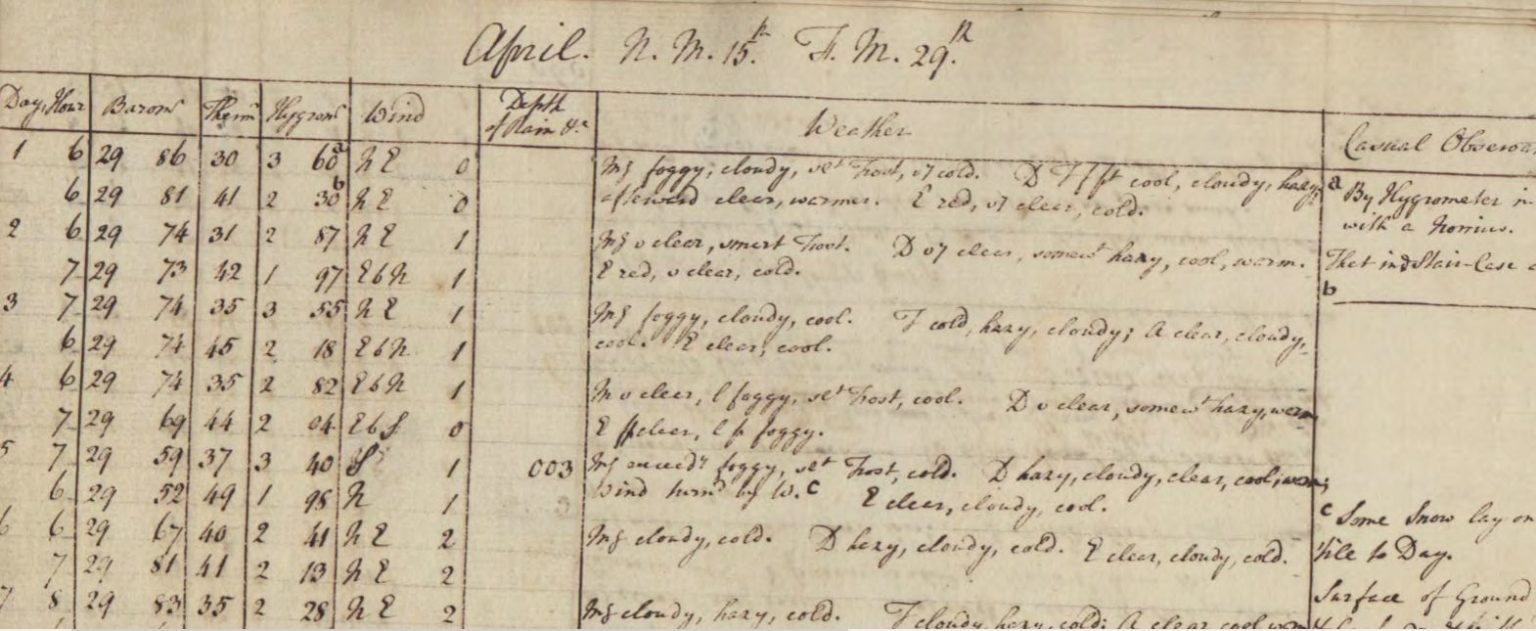 April. N. M. 15. F. M. 29.
Day, Hour Baromr Therm Hygromr Wind Depth of Rain &c Weather Casual Observa
1 6 29 86 30 3 60 a N E 0 Mg foggy, cloudy, slt Frost, vy cold. D cool, cloudy, hazy;
6 29 81 41 2 30 b N E 0 afterward clear, warmer. E red, vy clear, cold.
a By Hygrometer in
with a Nonius.
2 6 29 74 31 2 87 N E 1 Mg v clear, smart Frost. D vy clear, somewt hazy, cool, warm.
7 29 73 42 1 97 E b N 1 E red, v clear, cold.
That in Stair-Case
b
3 7 29 74 35 3 55 N E 1 Mg foggy, cloudy, cool. F cold, hazy, cloudy; A clear, cloudy,
6 29 74 45 2 18 E b N 1 cool. E clear, cool.
4 6 29 74 35 2 82 E b N 1 M v clear, l foggy, slt Frost, cool. D v clear, somewt hazy, warm
7 29 69 44 2 04 E b S 0 E clear, l foggy.
5 7 29 59 37 3 40 S 1 003 Mg foggy, slt Frost, cold. D hazy, cloudy, clear, cool, warm;
6 29 52 49 1 98 N 1 Wind turnd by W. c E clear, cloudy, cool.
6 6 29 67 40 2 41 N E 2 Mg cloudy, cold. D hazy, cloudy, cold. E clear, cloudy, cold.
c Some Snow lay on
till to Day.
7 29 81 41 2 13 N E 2
Surface of Ground
7 8 29 83 35 2 28 N E 2 Mg cloudy, hazy, cold. F cloudy, hazy, cold; A clear, cool